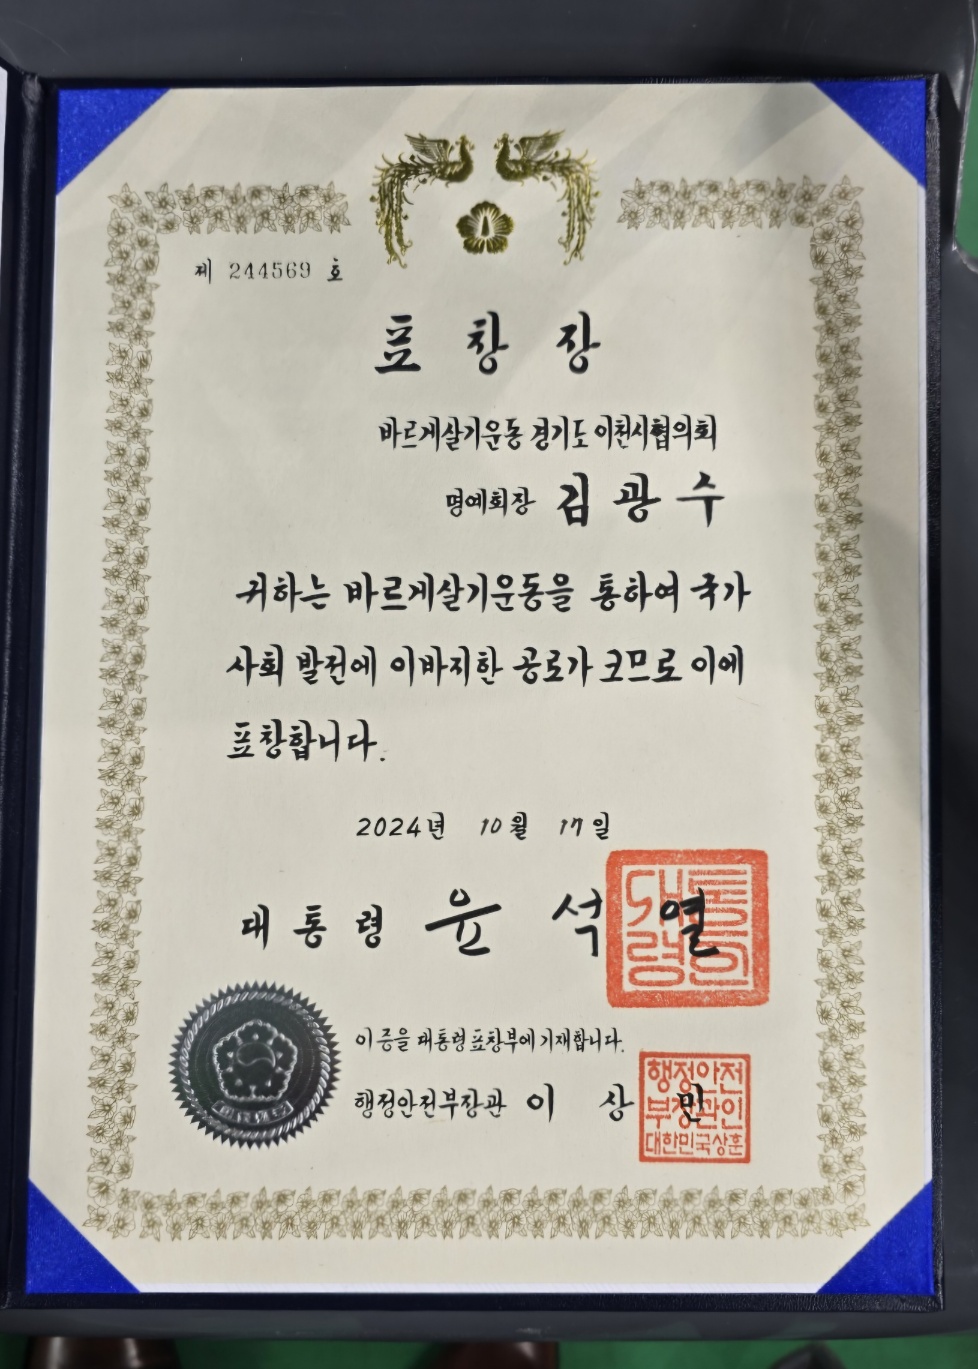 제 244569 호
표 창 장
바르게살기운동 경기도 이천시협의회
명예회장 김 광 수
귀하는 바르게살기운동을 통하여 국가
사회 발전에 이바지한 공로가 크므로 이에
표창합니다.
2024년 10월 17일
대 통 령 윤 석 열
대통령인
이 증을 대통령표창부에 기재합니다.
행정안전부장관 이 상 민
행정안전
부장관인
대한민국상훈